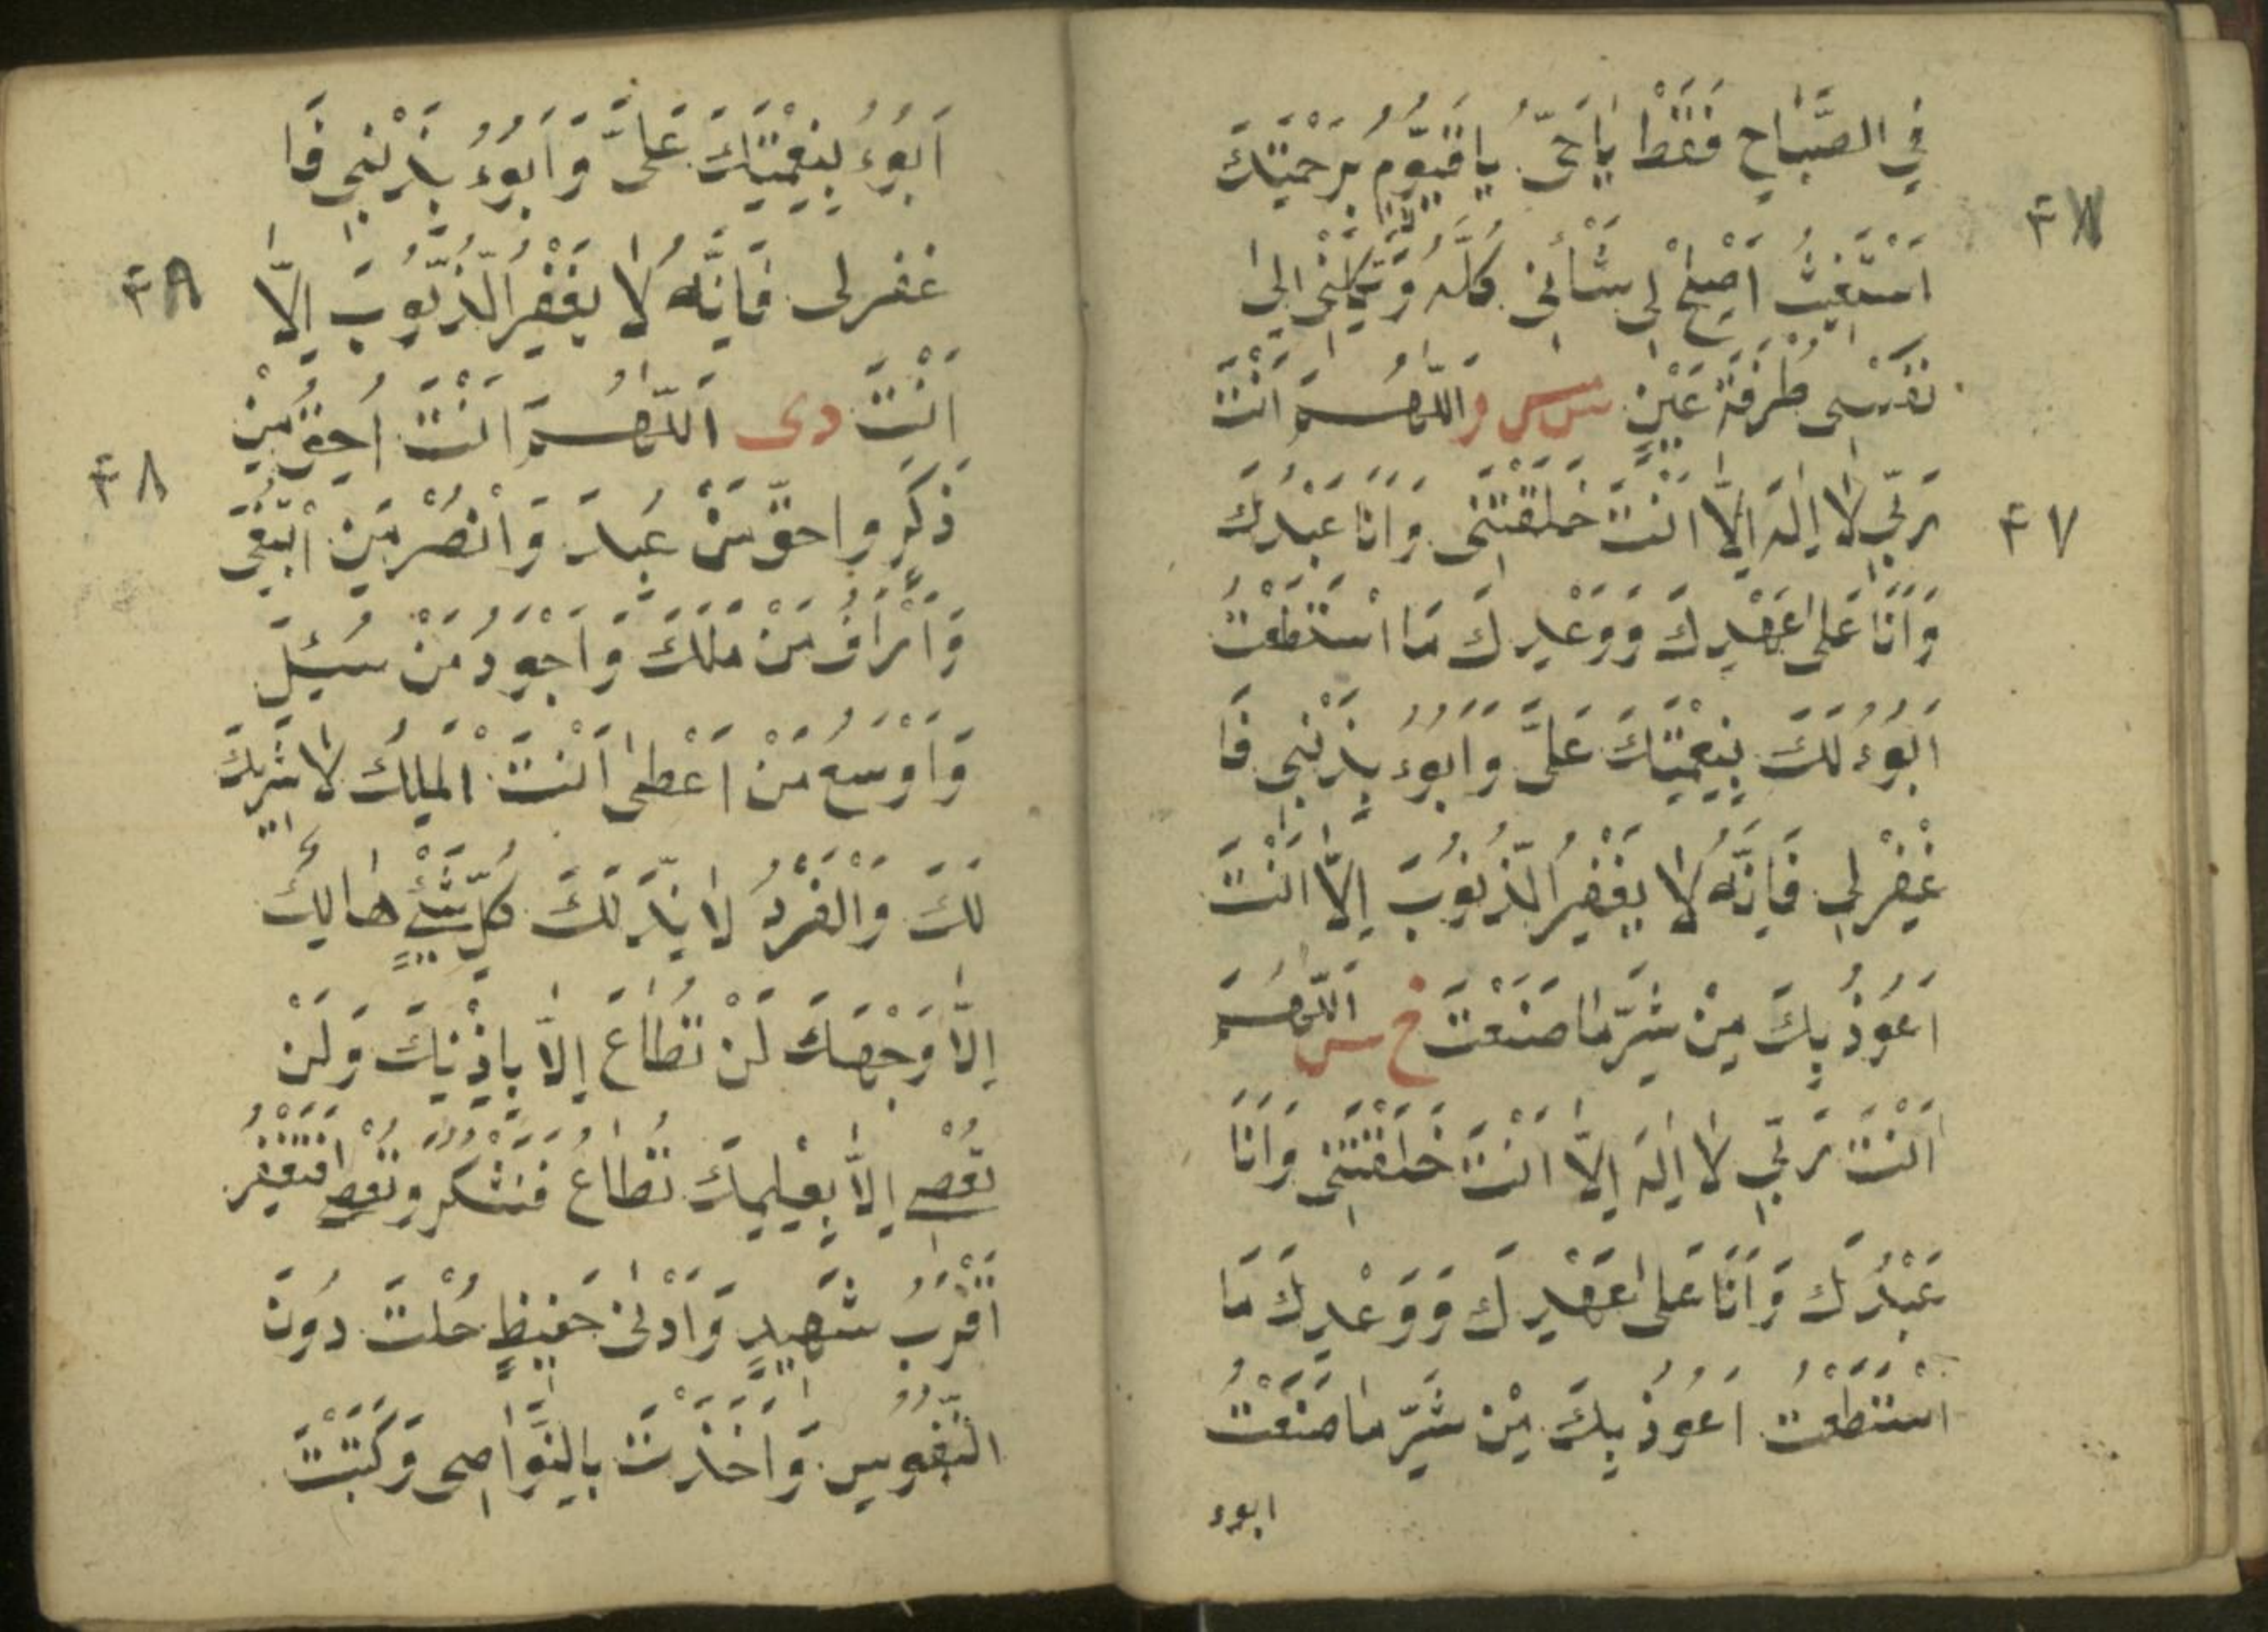 فِي الصَّبَاحِ فَقَطْ يَا حَيُّ يَا قَيُّوْمُ بِرَحْمَتِكَ
٤٧
اَسْتَغِيْثُ اَصْلِحْ لِي شَأْنِي كُلَّهُ وَتَكِلْنِي اِلىٰ
نَفْسِي طَرْفَةَ عَيْنٍ س مس ر اَللّٰهُمَّ اَنْتَ
رَبِّي لَا اِلٰهَ اِلَّا اَنْتَ خَلَقْتَنِي وَاَنَا عَبْدُكَ
٤٧
وَاَنَا عَلىٰ عَهْدِكَ وَوَعْدِكَ مَا اسْتَطَعْتُ
اَبُوْءُ لَكَ بِنِعْمَتِكَ عَلَيَّ وَاَبُوْءُ بِذَنْبِي فَا
غْفِرْلِي فَاِنَّهُ لَا يَغْفِرُ الذُّنُوْبَ اِلَّا اَنْتَ
اَعُوْذُ بِكَ مِنْ شَرِّ مَا صَنَعْتُ خ س اَللّٰهُمَّ
اَنْتَ رَبِّي لَا اِلٰهَ اِلَّا اَنْتَ خَلَقْتَنِي وَاَنَا
عَبْدُكَ وَاَنَا عَلىٰ عَهْدِكَ وَوَعْدِكَ مَا
اسْتَطَعْتُ اَعُوْذُ بِكَ مِنْ شَرِّ مَا صَنَعْتُ
ابوء
اَبُوْءُ بِنِعْمَتِكَ عَلَيَّ وَاَبُوْءُ بِذَنْبِي فَا
غفرلى فَاِنَّهُ لَا يَغْفِرُ الذُّنُوْبَ اِلَّا
٤٨
اَنْتَ دى اَللّٰهُمَّ اَنْتَ اَحَقُّ مَنْ
٤٨
ذُكِرَ واحقُّ مَنْ عُبِدَ وَاَنْصُرُ مَنِ ابْتُغِيَ
وَاَرْاَفُ مَنْ مَلَكَ وَاَجْوَدُ مَنْ سُئِلَ
وَاَوْسَعُ مَنْ اَعْطىٰ اَنْتَ الْمَلِكُ لَا شَرِيْكَ
لَكَ وَالْفَرْدُ لَا نِدَّ لَكَ كُلُّ شَيْءٍ هَالِكٌ
اِلَّا وَجْهَكَ لَنْ تُطَاعَ اِلَّا بِاِذْنِكَ وَلَنْ
تُعْصٰى اِلَّا بِعِلْمِكَ تُطَاعُ فَتَشْكُرُ وَتُعْصٰى فَتَغْفِرُ
اَقْرَبُ شَهِيْدٍ وَاَدْنىٰ حَفِيْظٍ حُلْتَ دُوْنَ
النُّفُوْسِ وَاَخَذْتَ بِالنَّوَاصِي وَكَتَبْتَ